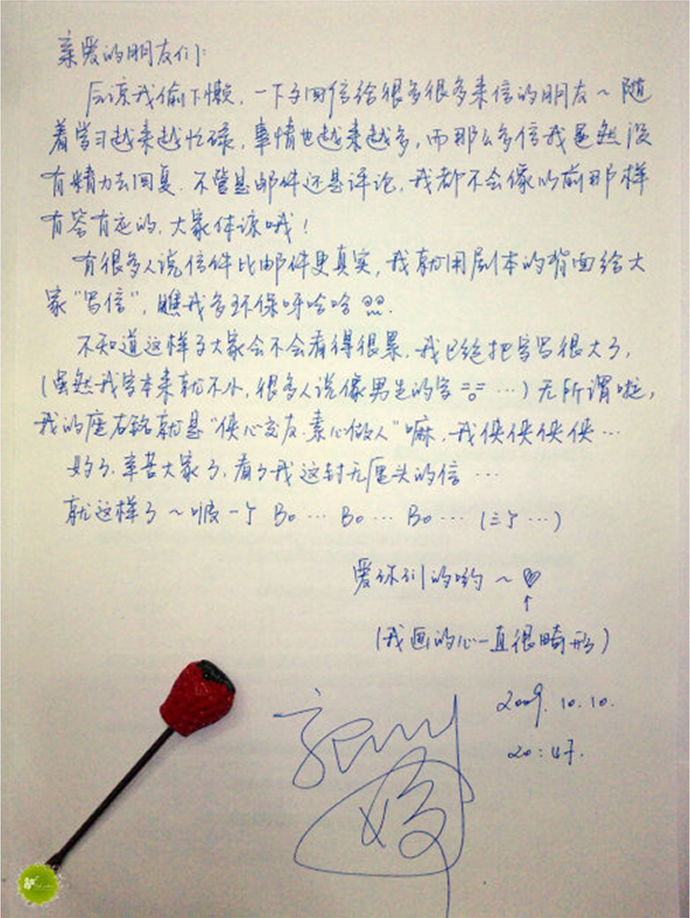 亲爱的朋友们:
原谅我偷下懒,一下子回信给很多很多来信的朋友~随
着学习越来越忙碌,事情也越来越多,而那么多信我虽然没
有精力去回复.不管是邮件还是评论,我都不会像以前那样
有答有应的,大家体谅哦!
有很多人说信件比邮件更真实,我就用剧本的背面给大
家“写信”,瞧我多环保呀哈哈
不知道这样子大家会不会看得很累,我已经把字写很大了,
(虽然我字本来就不小,很多人说像男生的字 =。= …)无所谓啦,
我的座右铭就是“侠心交友.素心做人”嘛,我侠侠侠侠…
好了.辛苦大家了,看了我这封无厘头的信…
就这样了~啵一个 Bo … Bo … Bo … (三个…)
爱你们的哟~♡
↑
(我画的心一直很畸形)
2009.10.10.
20:47.